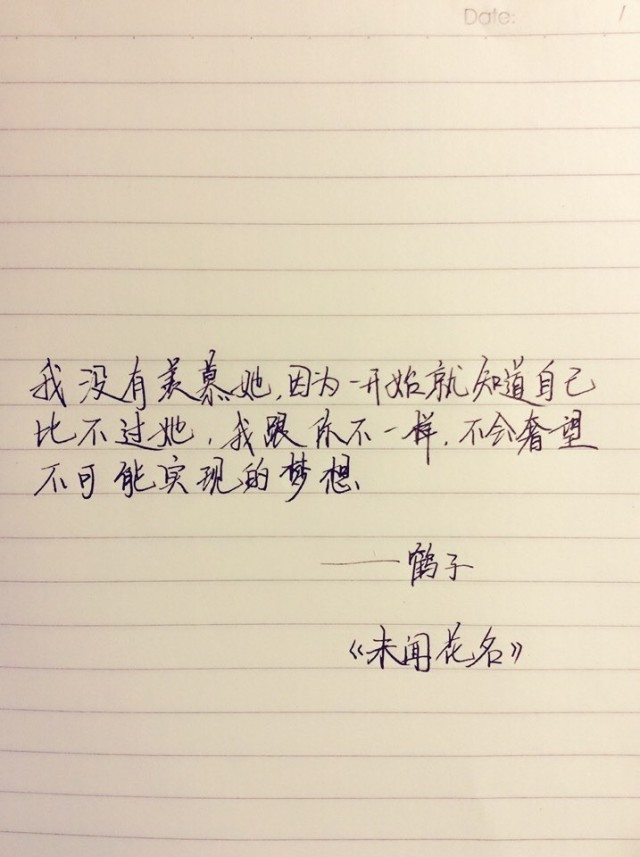 Date: 1
我没有羡慕她,因为一开始就知道自己
比不过她,我跟你不一样,不会奢望
不可能实现的梦想、
——鹤子
《未闻花名》